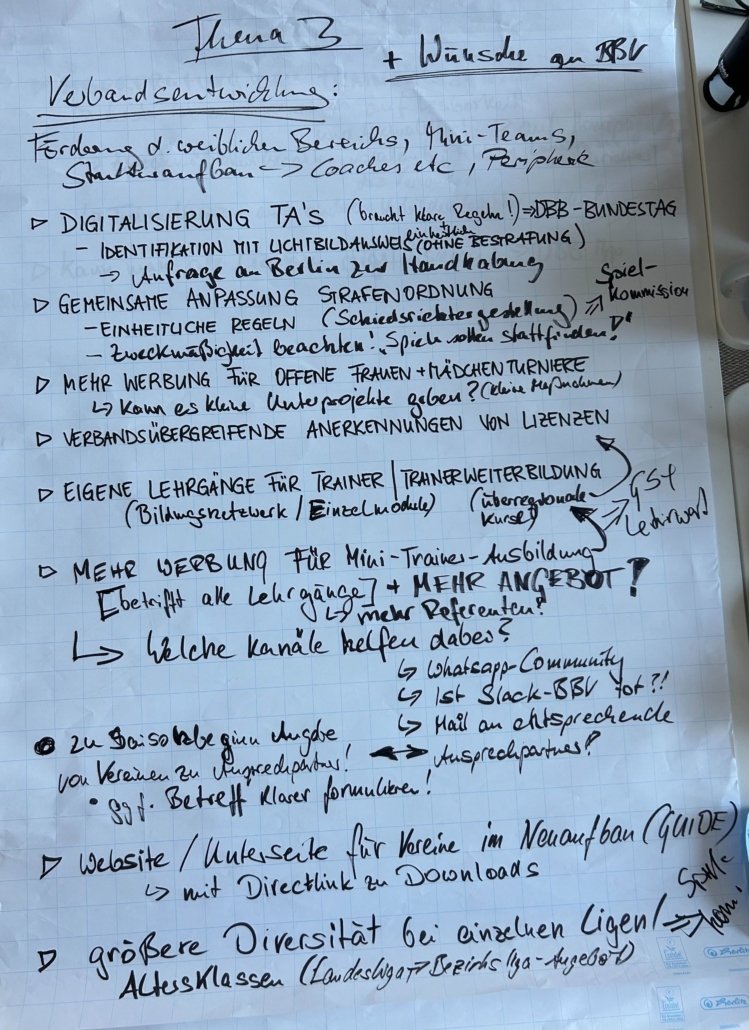 Thema 3
+ Wünsche an BBV
Verbandsentwicklung:
Förderung d. weiblichen Bereichs, Mini-Teams,
Strukturaufbau -> Coaches etc, Peripherie
▷ DIGITALISIERUNG TA'S (braucht klare Regeln!) ⇒ DBB-BUNDESTAG
- IDENTIFIKATION MIT LICHTBILDAUSWEIS einheitlich (OHNE BESTRAFUNG)
→ Anfrage an Berlin zur Handhabung
▷ GEMEINSAME ANPASSUNG STRAFENORDNUNG
⇒ Spiel-
kommission
- EINHEITLICHE REGELN (Schiedsrichtergestellung)
- Zweckmäßigkeit beachten! „Spiele sollen stattfinden!"
▷ MEHR WERBUNG FÜR OFFENE FRAUEN + MÄDCHENTURNIERE
↳ Kann es kleine Unterprojekte geben? (kleine Maßnahmen)
▷ VERBANDSÜBERGREIFENDE ANERKENNUNGEN VON LIZENZEN
▷ EIGENE LEHRGÄNGE FÜR TRAINER | TRAINERWEITERBILDUNG
(Bildungsnetzwerk / Einzelmodule) (überregionale
Kurse)
⇒ GST
Lehrwart
▷ MEHR WERBUNG FÜR Mini-Trainer-Ausbildung
[betrifft alle Lehrgänge] + MEHR ANGEBOT!
↳ mehr Referenten?
↳ Welche Kanäle helfen dabei?
↳ Whatsapp-Community
↳ Ist Slack-BBV tot?!
↳ Mail an entsprechende
Ansprechpartner?
● zu Saisonbeginn Angabe
von Vereinen zu Ansprechpartner! ↔
• ggf. Betreff klarer formulieren!
▷ Website / Unterseite für Vereine im Neuaufbau (GUIDE)
↳ mit Directlink zu Downloads
▷ größere Diversität bei einzelnen Ligen/ ⇒ Spielkom.
Altersklassen (Landesliga → Bezirksliga-Angebot)
Berlin
Berlin